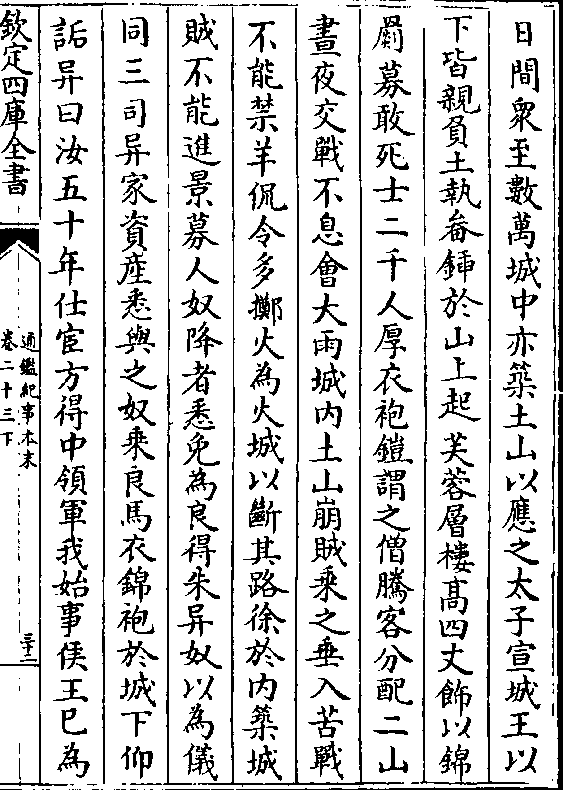 日間衆至數萬城中亦築土山以應之太子宣城王以
下皆親負土執畚鍤於山上起芙蓉層樓髙四丈飾以錦
罽募敢死士二千人厚衣袍鎧謂之僧騰客分配二山
晝夜交戰不息會大雨城内土山崩賊乗之垂入苦戰
不能禁羊侃令多擲火為火城以斷其路徐於内築城
賊不能進景募人奴降者悉免為良得朱异奴以為儀
同三司异家資産悉與之奴乗良馬衣錦袍於城下仰
詬异曰汝五十年仕宦方得中領軍我始事侯王已為
欽定四庫全書
通鑑紀事本末
卷二十三下
三十二